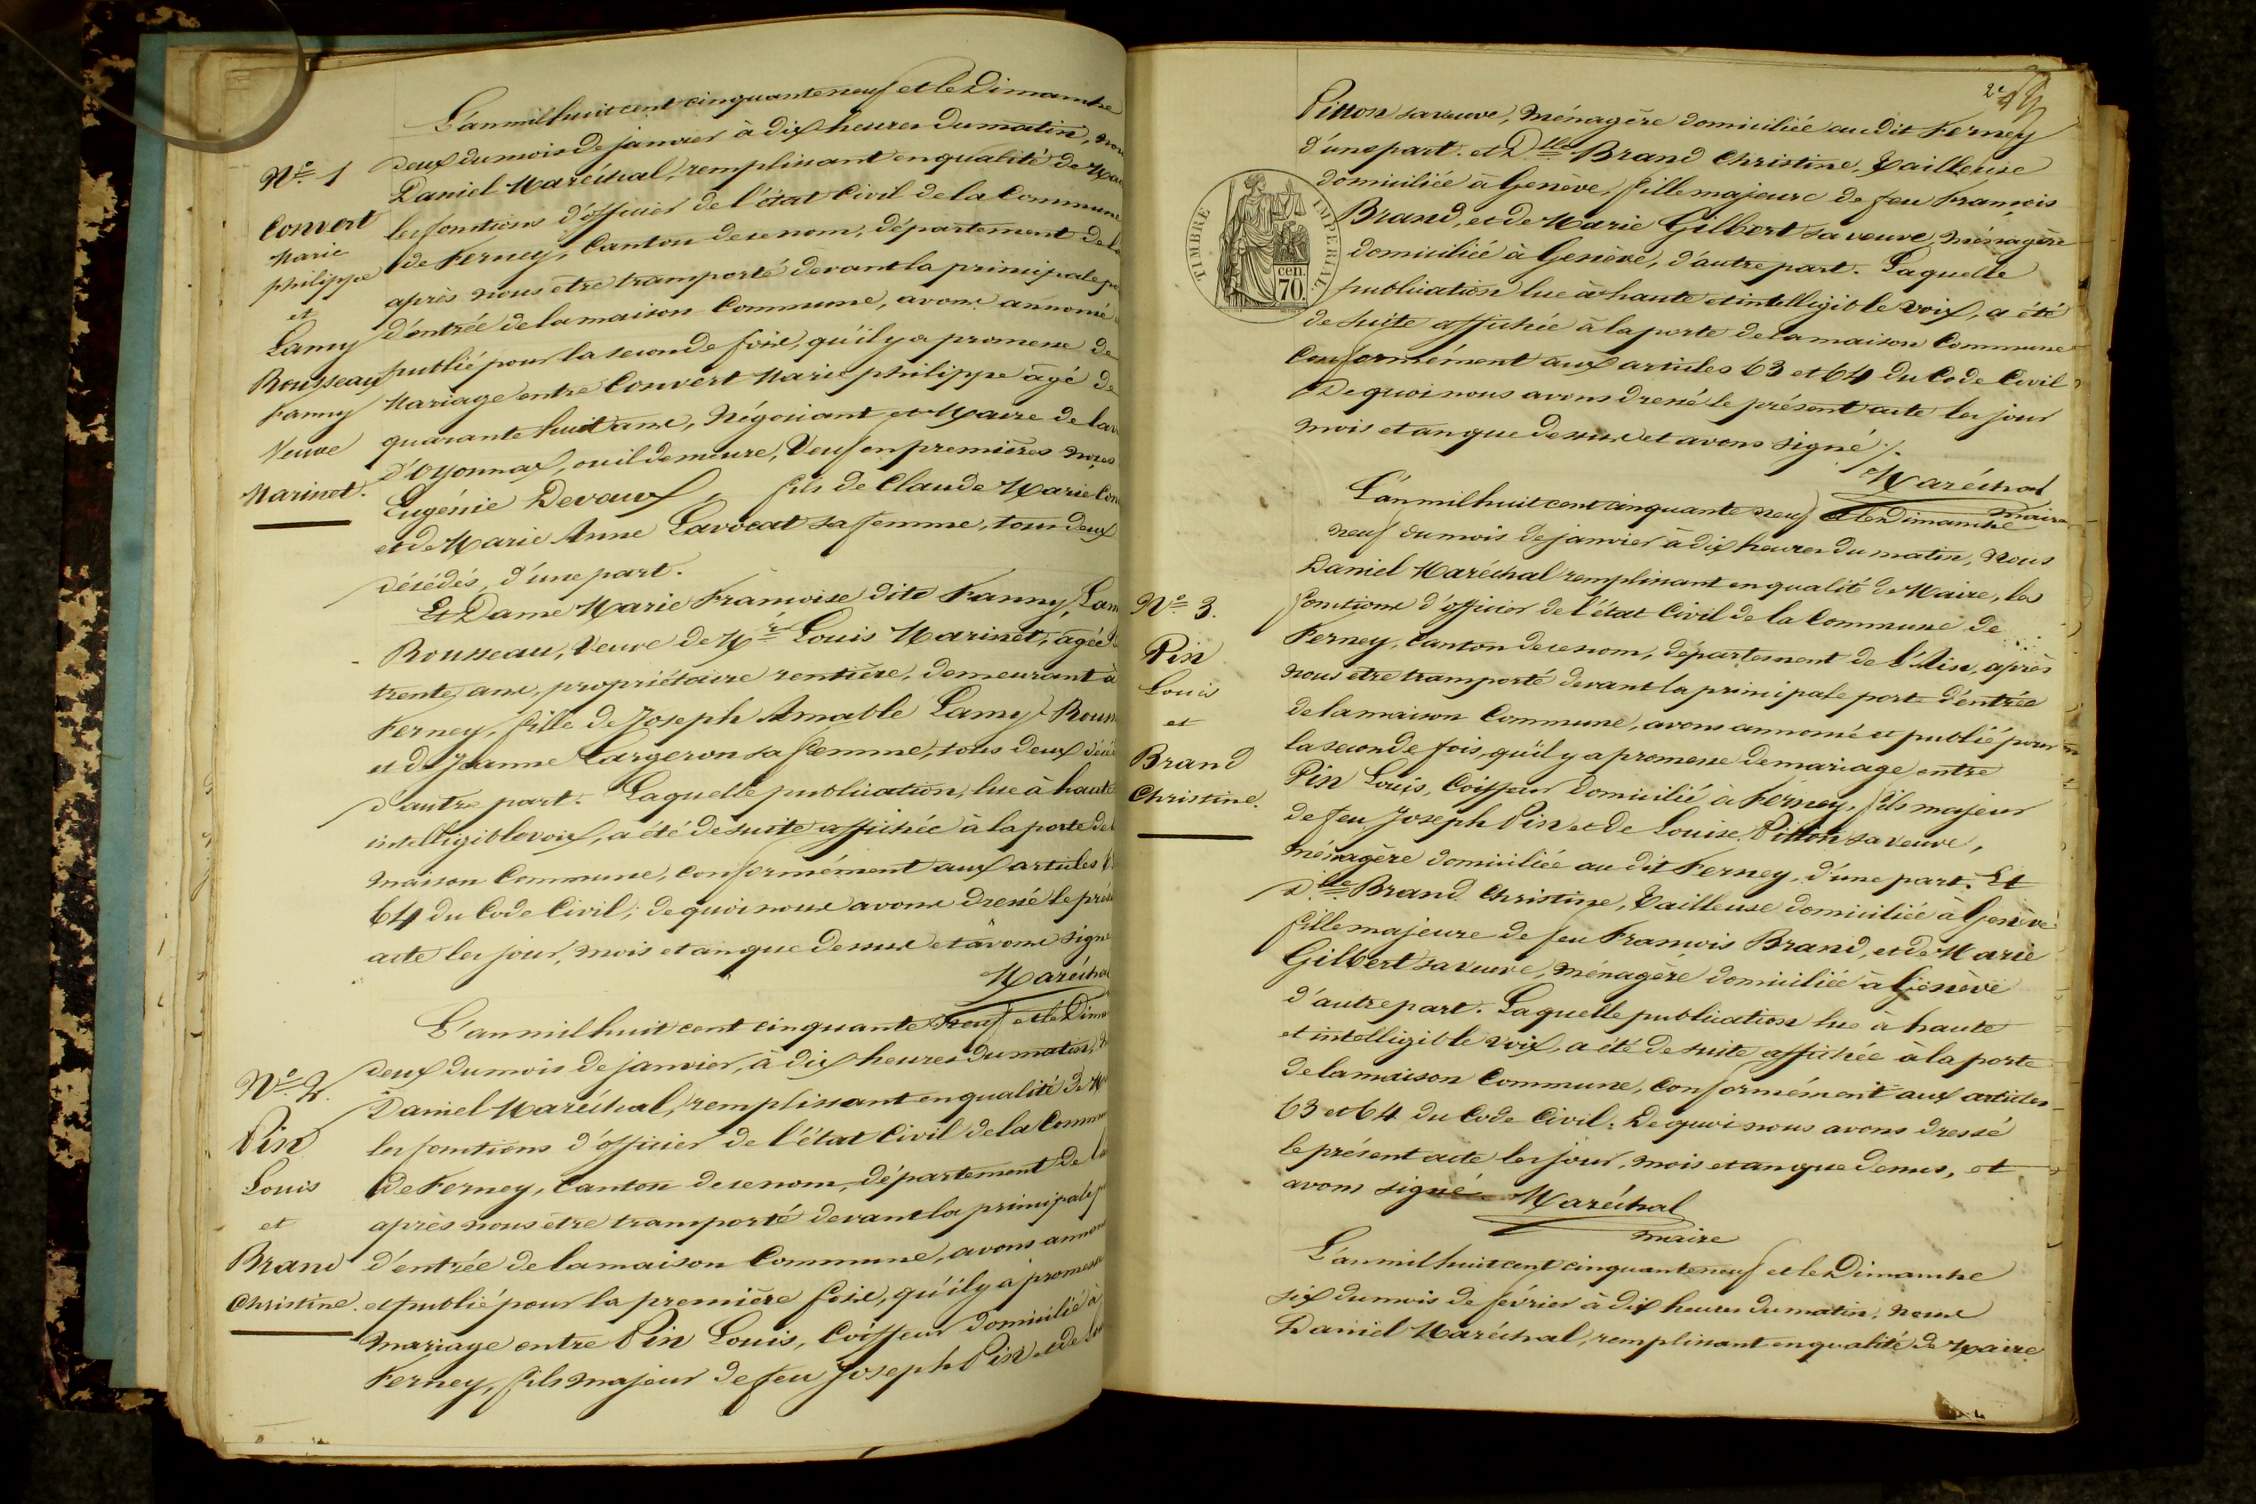 N.º 1
Convert
Marie
philippe
et
Lamy
Rousseau
Fanny
Veuve
Marinet.
L'an mil huit cent cinquante neuf et le Dimanche
deux du mois de janvier à dix heures du matin, nous
Daniel Maréchal, remplissant en qualité de
les fonctions d'officier de l'état Civil de la Commune
de Ferney, Canton de ce nom, département de
après nous être transporté devant la principale
d'entrée de la maison Commune, avons annoncé
publié pour la seconde fois, qu'il y a promesse de
Mariage entre Convert Marie philippe âgé de
quarante huit ans, Négociant et Maire de la
d'Oyonnax, où il demeure, Veuf en premières noces
Eugénie Devaux, fils de Claude Marie
et de Marie Anne Lavocat sa femme, tous deux
décédés, d'une part.
Et Dame Marie Francoise dite Fanny,
Rousseau, Veuve de Mr Louis Marinet, âgée
trente ans, propriétaire rentière, demeurant à
Ferney, fille de Joseph Amable Lamy
et de Jeanne Cargeron sa femme, tous deux
d'autre part. Laquelle publication, lue à haute
intelligible voix, a été de suite affichée à la porte de
maison Commune, Conformément aux articles
64 du Code Civil; de quoi nous avons dressé le
acte les jour, mois et an que dessus et avons signé
Maréchal
N.º 2.
Pin
Louis
et
Brand
Christine.
L'an mil huit cent cinquante neuf et le
deux du mois de janvier, à dix heures du matin,
Daniel Maréchal, remplissant en qualité de
les fonctions d'officier de l'état Civil de la
de Ferney, Canton de ce nom, département de
après nous être transporté devant la principale
d'entrée de la maison Commune, avons
et publié pour la première fois, qu'il y a promesse
mariage entre Pin Louis, Coiffeur domicilié à
Ferney, fils majeur de feu Joseph Pin et de
2e
Pitton sa veuve, Ménagère domiciliée au dit Ferney
d'une part. et Dlle Brand Christine, Tailleuse
domiciliée à Genève, fille majeure de feu François
Brand, et de Marie Gilbert sa veuve, ménagère
domiciliée à Genève, d'autre part. Laquelle
publication lue à haute et intelligible voix, a été
de suite affichée à la porte de la maison Commune
Conformément aux articles 63 et 64 du Code Civil
De quoi nous avons dressé le présent acte les jour
mois et an que dessus et avons signé ./.
Maréchal
maire
TIMBRE IMPERIAL
70 cen.
N.º 3.
Pin
Louis
et
Brand
Christine.
L'an mil huit cent cinquante neuf et le Dimanche
neuf du mois de janvier à dix heures du matin, Nous
Daniel Maréchal remplissant en qualité de Maire, les
fonctions d'officier de l'état Civil de la Commune de
Ferney, Canton de ce nom, département de l'Ain, après
nous être transporté devant la principale porte d'entrée
de la maison Commune, avons annoncé et publié pour
la seconde fois, qu'il y a promesse de mariage entre
Pin Louis, Coiffeur domicilié à Ferney, fils majeur
de feu Joseph Pin et de Louise Pitton sa veuve,
ménagère domiciliée au dit Ferney, d'une part. Et
Dlle Brand Christine, Tailleuse domiciliée à Genève
fille majeure de feu François Brand, et de Marie
Gilbert sa veuve, ménagère domiciliée à Genève
d'autre part. Laquelle publication lue à haute
et intelligible voix, a été de suite affichée à la porte
de la maison Commune, Conformément aux articles
63 et 64 du Code Civil. De quoi nous avons dressé
le présent acte les jour, mois et an que dessus, et
avons signé. Maréchal
maire
L'an mil huit cent cinquante neuf et le Dimanche
six du mois de février à dix heures du matin, nous
Daniel Maréchal, remplissant en qualité de Maire